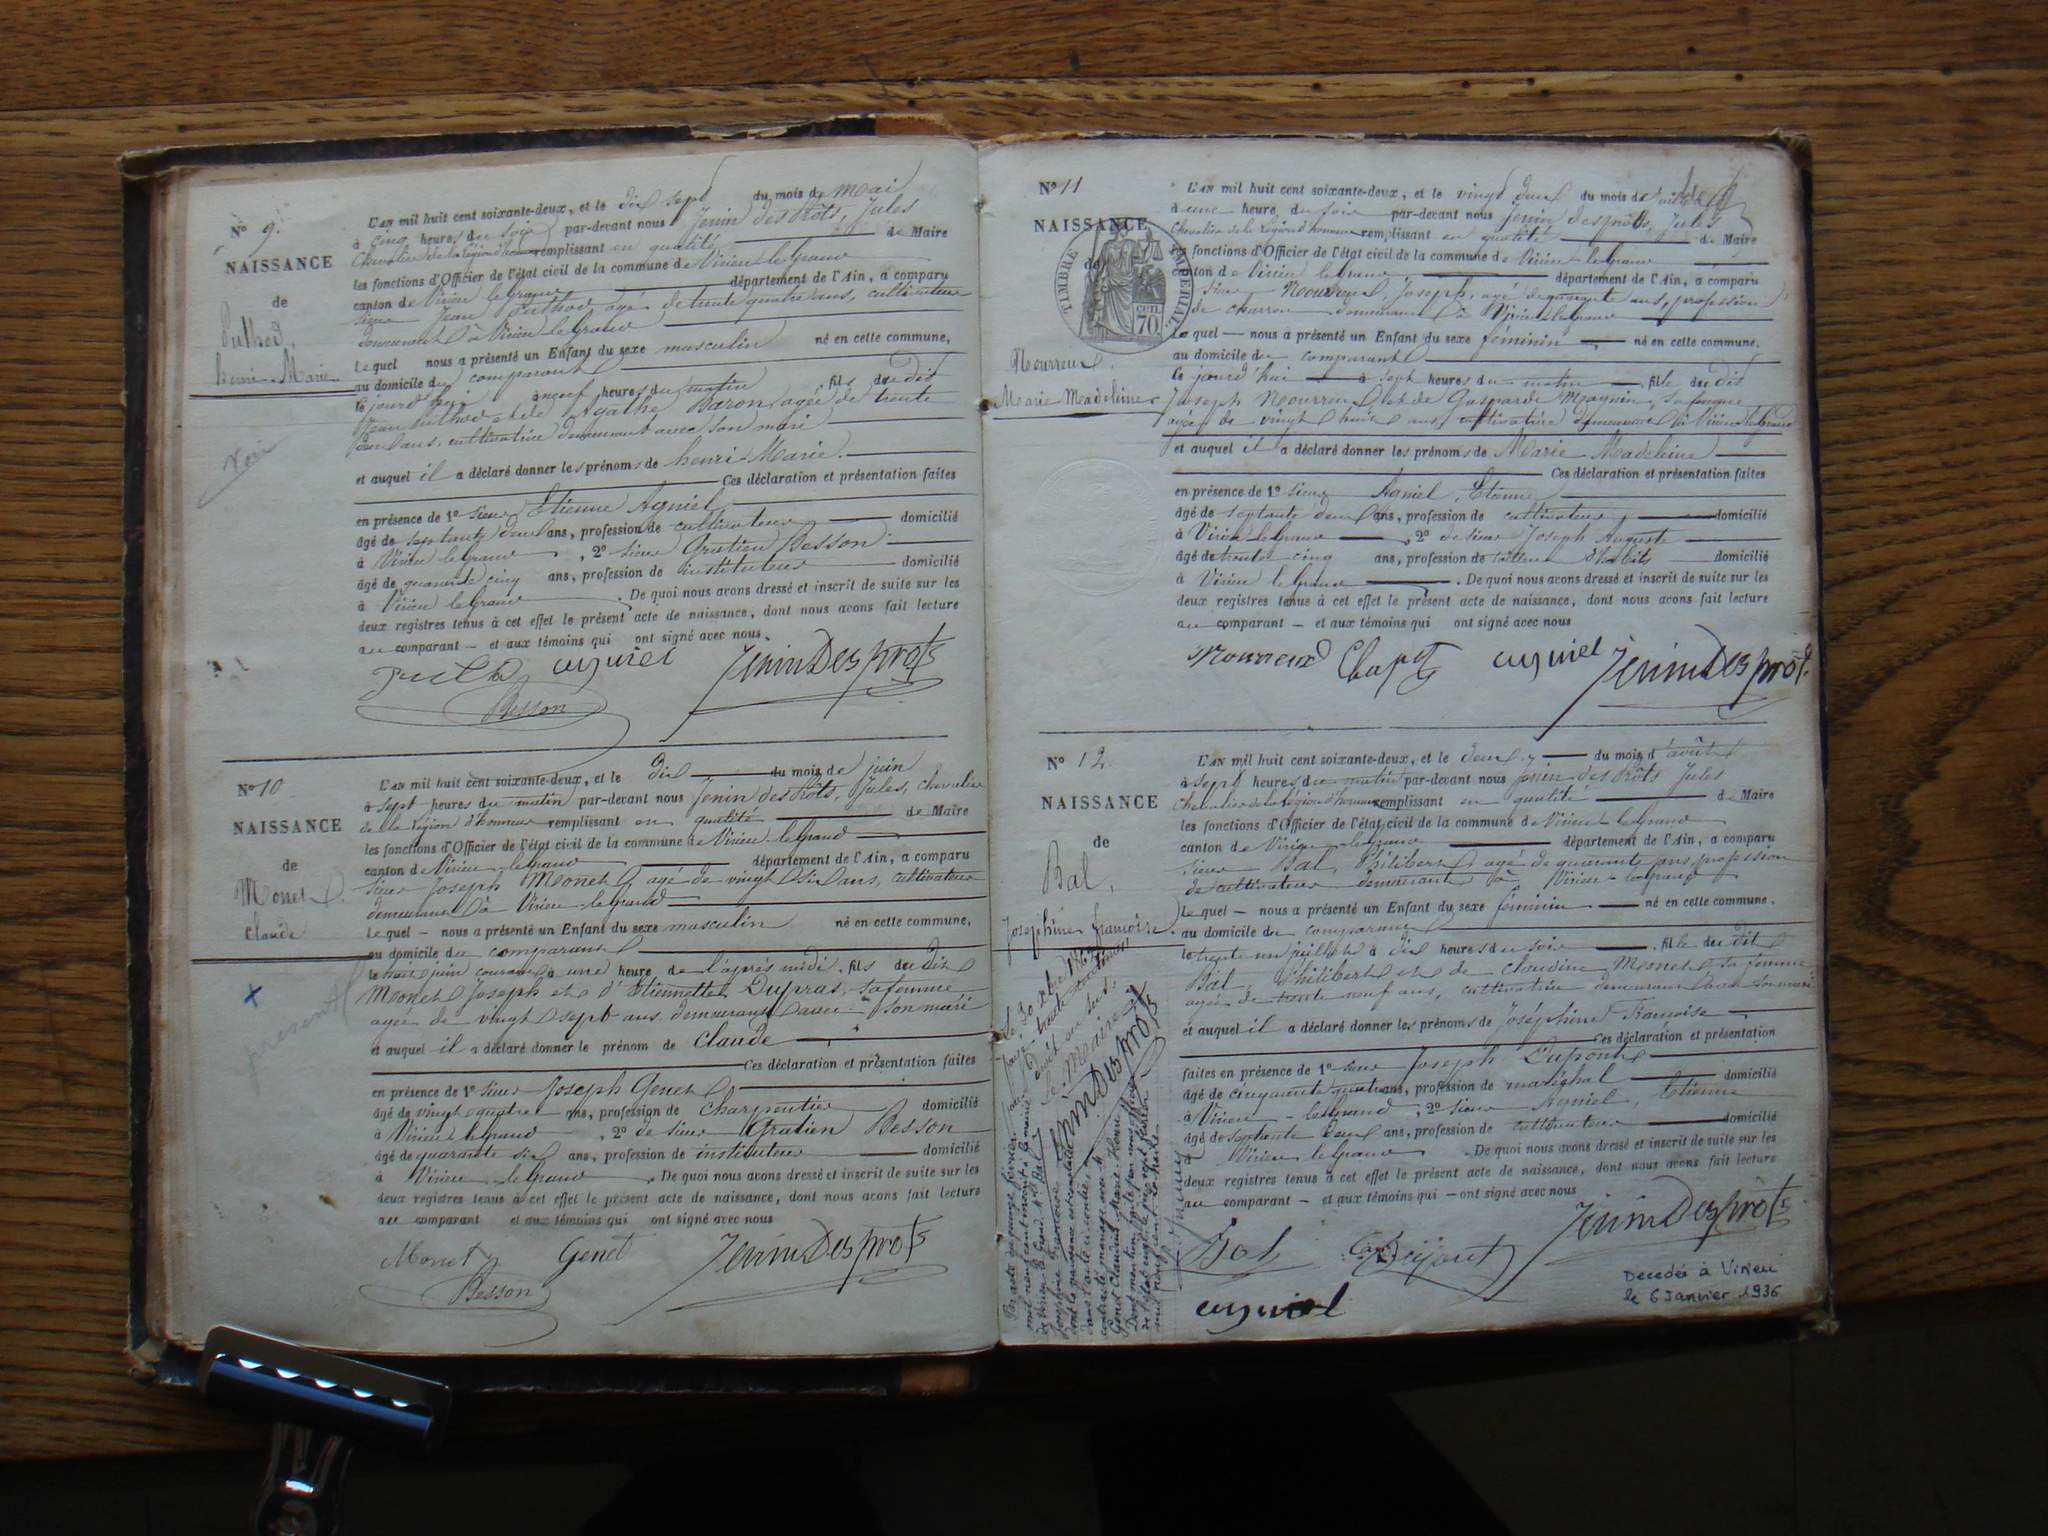 N° 9.
NAISSANCE
de
Puthod,
henri-Marie
L'AN mil huit cent soixante-deux, et le dix sept du mois de mai
à cinq heures du soir par-devant nous Jenin des Prôts, Jules
Chevalier de la Légion d'honneur remplissant en qualité de Maire
les fonctions d'Officier de l'état civil de la commune de Virieu-le-Grand
canton de Virieu le Grand département de l'Ain, a comparu
sieur Jean Puthod agé de trente quatre ans, cultivateur
demeurant à Virieu le Grand
Lequel nous a présenté un Enfant du sexe masculin né en cette commune,
au domicile du comparant
le jourd'hui à neuf heures du matin, fils du dit
Jean Puthod et de Agathe Baron, agée de trente
ans, cultivatrice demeurant avec son mari
et auquel il a déclaré donner les prénoms de henri-Marie.
Ces déclaration et présentation faites
en présence de 1° sieur Etienne Agniel
âgé de septante deux ans, profession de cultivateur domicilié
à Virieu le Grand, 2° sieur Gratien Besson
âgé de quarante cinq ans, profession de instituteur domicilié
à Virieu le Grand. De quoi nous avons dressé et inscrit de suite sur les
deux registres tenus à cet effet le présent acte de naissance, dont nous avons fait lecture
au comparant — et aux témoins qui ont signé avec nous.
agniel JeninDesprôts
Besson
N° 10
NAISSANCE
de
Monet
Claude
L'AN mil huit cent soixante-deux, et le dix du mois de juin
à sept heures du matin par-devant nous Jenin des Prôts, Jules, chevalier
de la Légion d'honneur remplissant en qualité de Maire
les fonctions d'Officier de l'état civil de la commune de Virieu-le-Grand
canton de Virieu-le-grand département de l'Ain, a comparu
sieur Joseph Monet, agé de vingt six ans, cultivateur
demeurant à Virieu-le-grand
Lequel — nous a présenté un Enfant du sexe masculin né en cette commune,
au domicile du comparant
le huit juin courant à une heure de l'après midi, fils du dit
Monet Joseph et d'Etiennette Dupras, sa femme
agée de vingt sept ans demeurant avec son mari
et auquel il a déclaré donner le prénom de Claude
Ces déclaration et présentation faites
en présence de 1° sieur Joseph Genet
âgé de vingt quatre ans, profession de charpentier domicilié
à Virieu le grand, 2° de sieur Gratien Besson
âgé de quarante six ans, profession de instituteur domicilié
à Virieu-le Grand. De quoi nous avons dressé et inscrit de suite sur les
deux registres tenus à cet effet le présent acte de naissance, dont nous avons fait lecture
au comparant et aux témoins qui ont signé avec nous
Monet Genet JeninDesprôts
Besson
N° 11
NAISSANCE
de
TIMBRE IMPERIAL
CEN. 70
Mourreux
Marie Madeleine
L'AN mil huit cent soixante-deux, et le vingt deux du mois de juillet
à une heure du soir par-devant nous Jenin des prôts, Jules
Chevalier de la Légion d'honneur remplissant en qualité de Maire
les fonctions d'Officier de l'état civil de la commune de Virieu-le-Grand
canton de Virieu le Grand département de l'Ain, a comparu
sieur Mourreux, Joseph, agé de quarante ans, profession
de charron demeurant à Virieu le grand
Lequel — nous a présenté un Enfant du sexe féminin né en cette commune.
au domicile du comparant
le jourd'hui à sept heures du matin, fille du dit
Joseph Mourreux et de Gasparde Magnin, sa femme
agée de vingt huit ans cultivatrice demeurant à Virieu le Grand
et auquel il a déclaré donner les prénoms de Marie Madeleine
Ces déclaration et présentation faites
en présence de 1° sieur Agniel, Etienne
âgé de septante deux ans, profession de cultivateur, domicilié
à Virieu le Grand, 2° de sieur Joseph Auguste
âgé de trente cinq ans, profession de tailleur d'habits domicilié
à Virieu le Grand. De quoi nous avons dressé et inscrit de suite sur les
deux registres tenus à cet effet le présent acte de naissance, dont nous avons fait lecture
au comparant — et aux témoins qui ont signé avec nous
Mourreux agniel JeninDesprôts
N° 12
NAISSANCE
de
Bal,
Joséphine françoise
L'AN mil huit cent soixante-deux, et le deux du mois d'août
à sept heures du matin par-devant nous Jenin des Prôts Jules
Chevalier de la Légion d'honneur remplissant en qualité de Maire
les fonctions d'Officier de l'état civil de la commune de Virieu-le-Grand
canton de Virieu-le-grand département de l'Ain, a comparu
sieur Bal, Philibert, agé de quarante ans profession
de cultivateur demeurant à Virieu-le-grand
Lequel — nous a présenté un Enfant du sexe féminin né en cette commune.
au domicile du comparant
le trente un juillet à dix heures du soir, fille du dit
Bal, Philibert et de Claudine Monet sa femme
agée de trente neuf ans, cultivatrice demeurant avec son mari
et auquel il a déclaré donner les prénoms de Joséphine Françoise
Ces déclaration et présentation
faites en présence de 1° sieur Joseph Dupont
âgé de cinquante quatre ans, profession de maréchal domicilié
à Virieu-le Grand, 2° sieur Agniel, Etienne
âgé de septante deux ans, profession de cultivateur domicilié
à Virieu le Grand. De quoi nous avons dressé et inscrit de suite sur les
deux registres tenus à cet effet le présent acte de naissance, dont nous avons fait lecture
au comparant — et aux témoins qui — ont signé avec nous
Bal Dupont JeninDesprôts
agniel
Decedée à Virieu
le 6 Janvier 1936
le Maire
JeninDesprôts